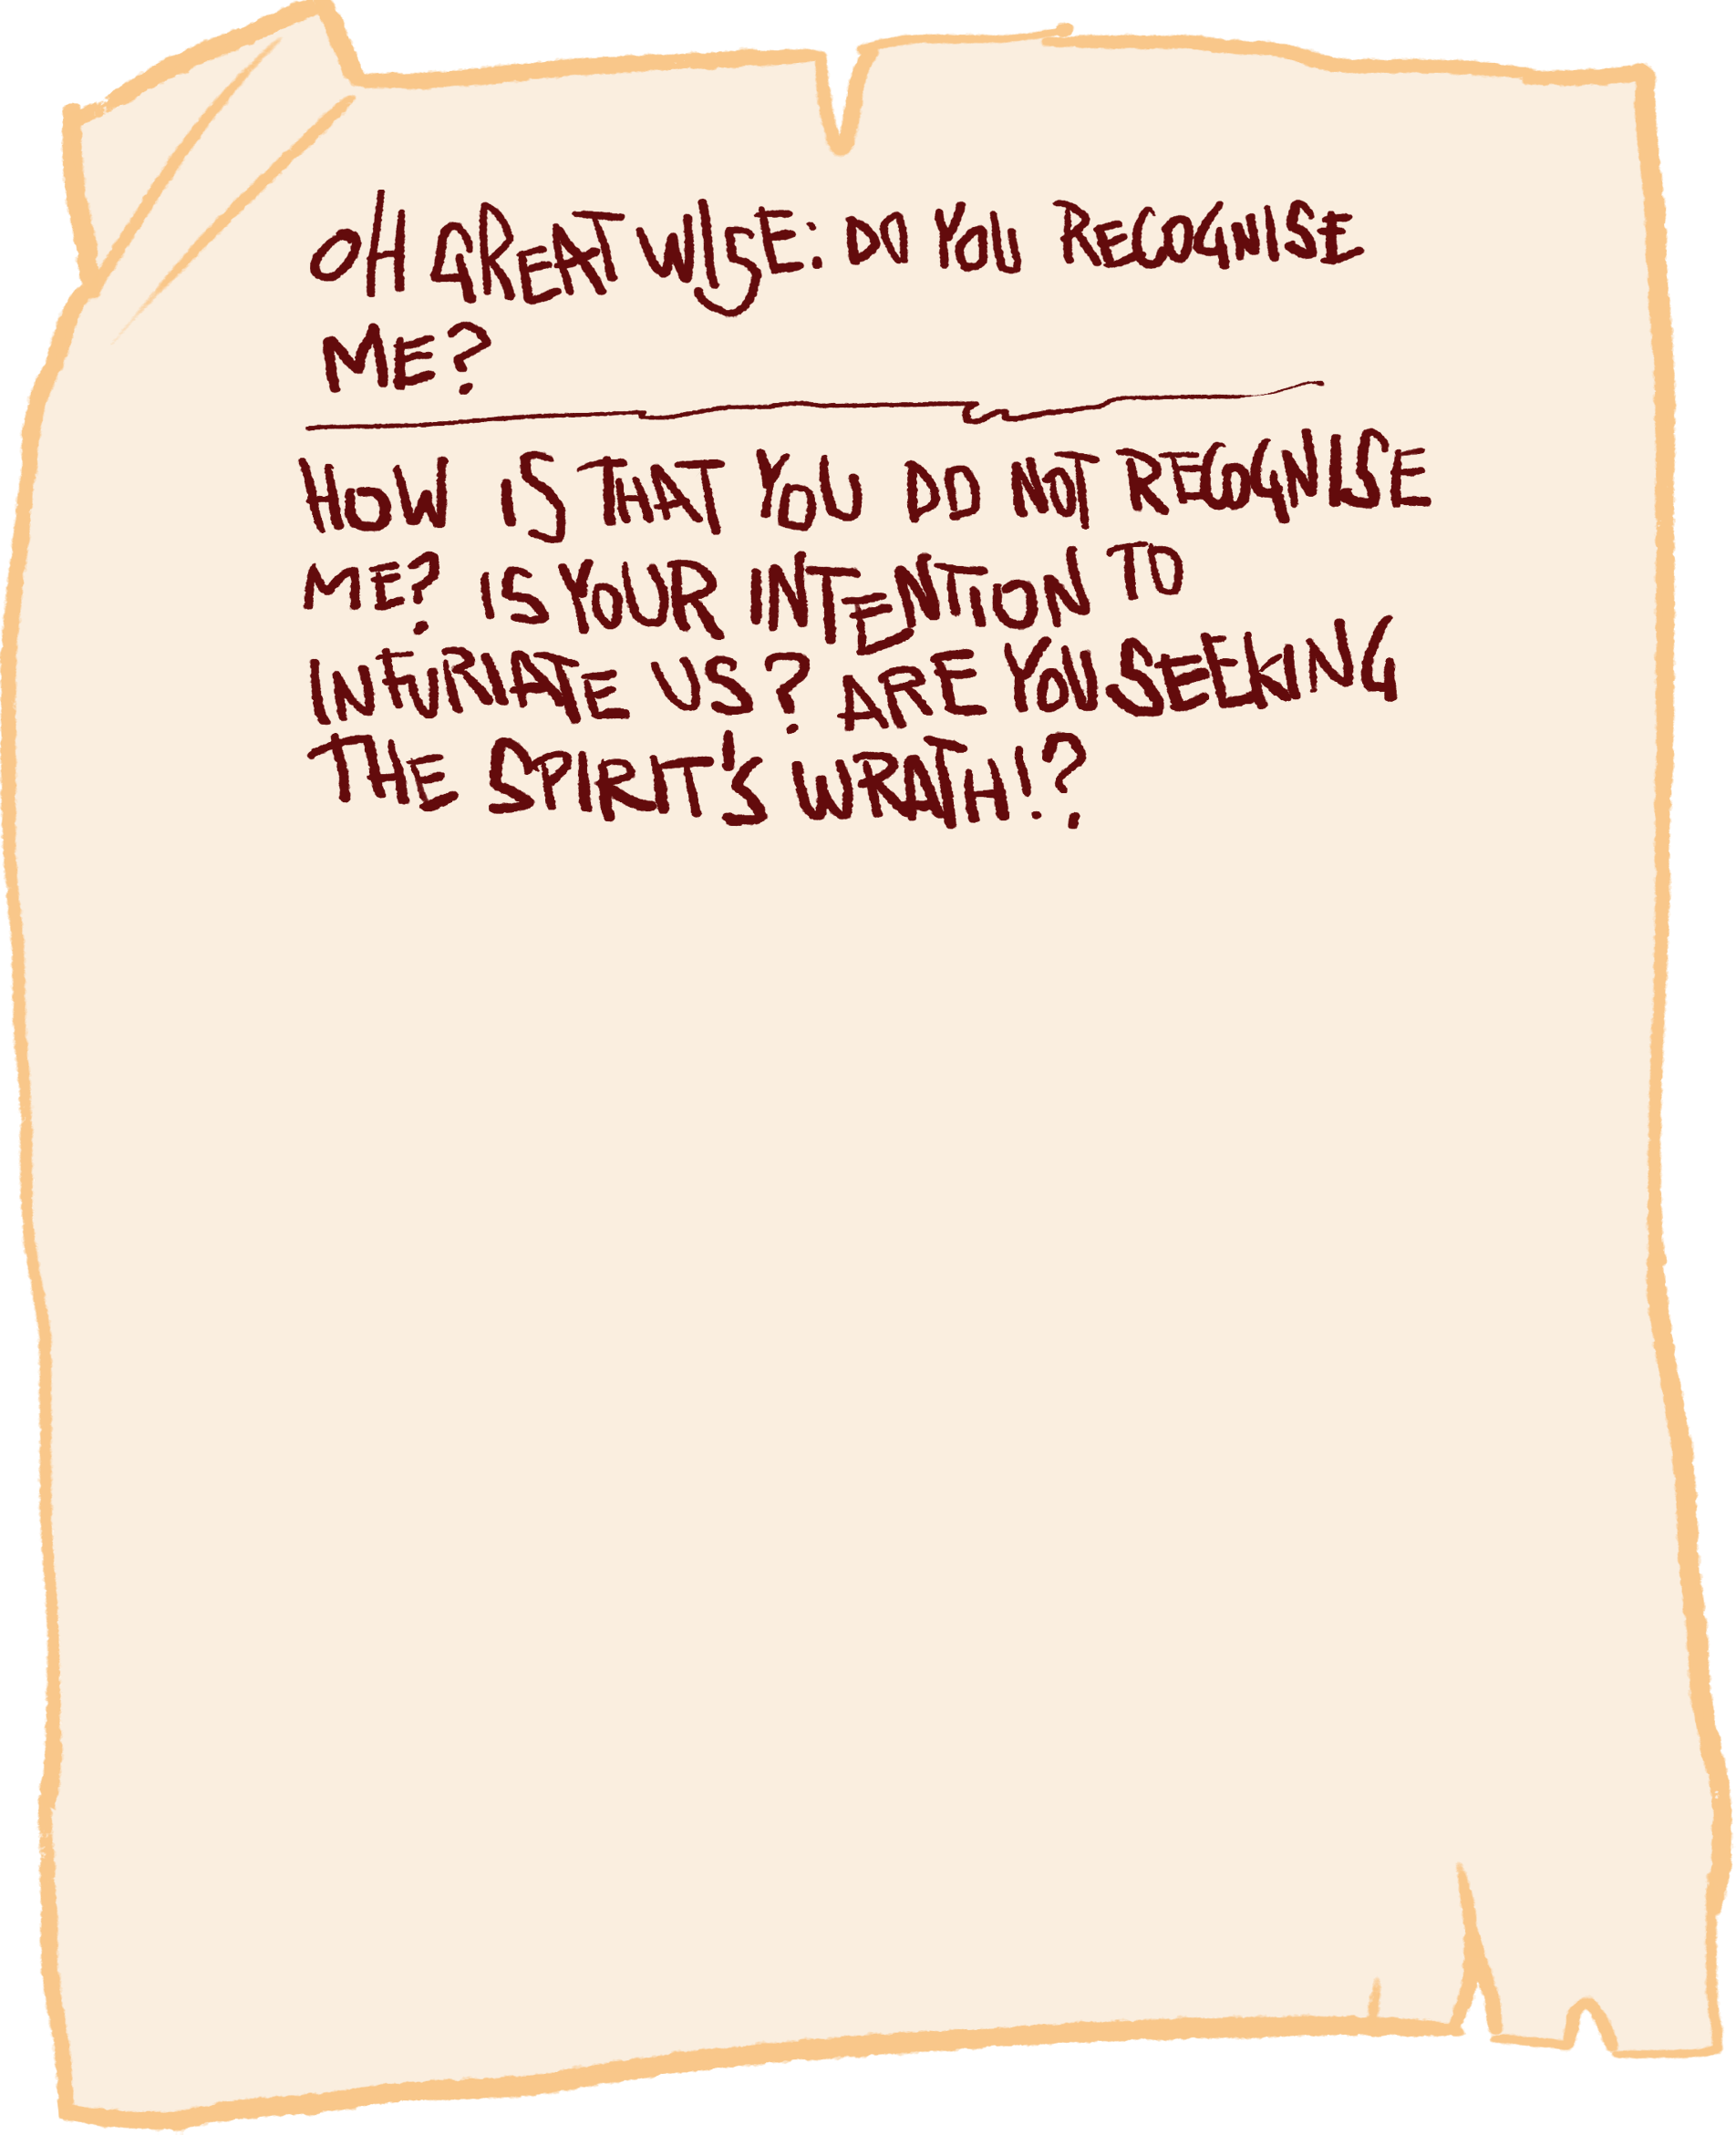 OH GREAT WISE: DO YOU RECOGNISE
ME?
HOW IS THAT YOU DO NOT RECOGNISE
ME? IS YOUR INTENTION TO
INFURIATE US? ARE YOU SEEKING
THE SPIRIT'S WRATH!?